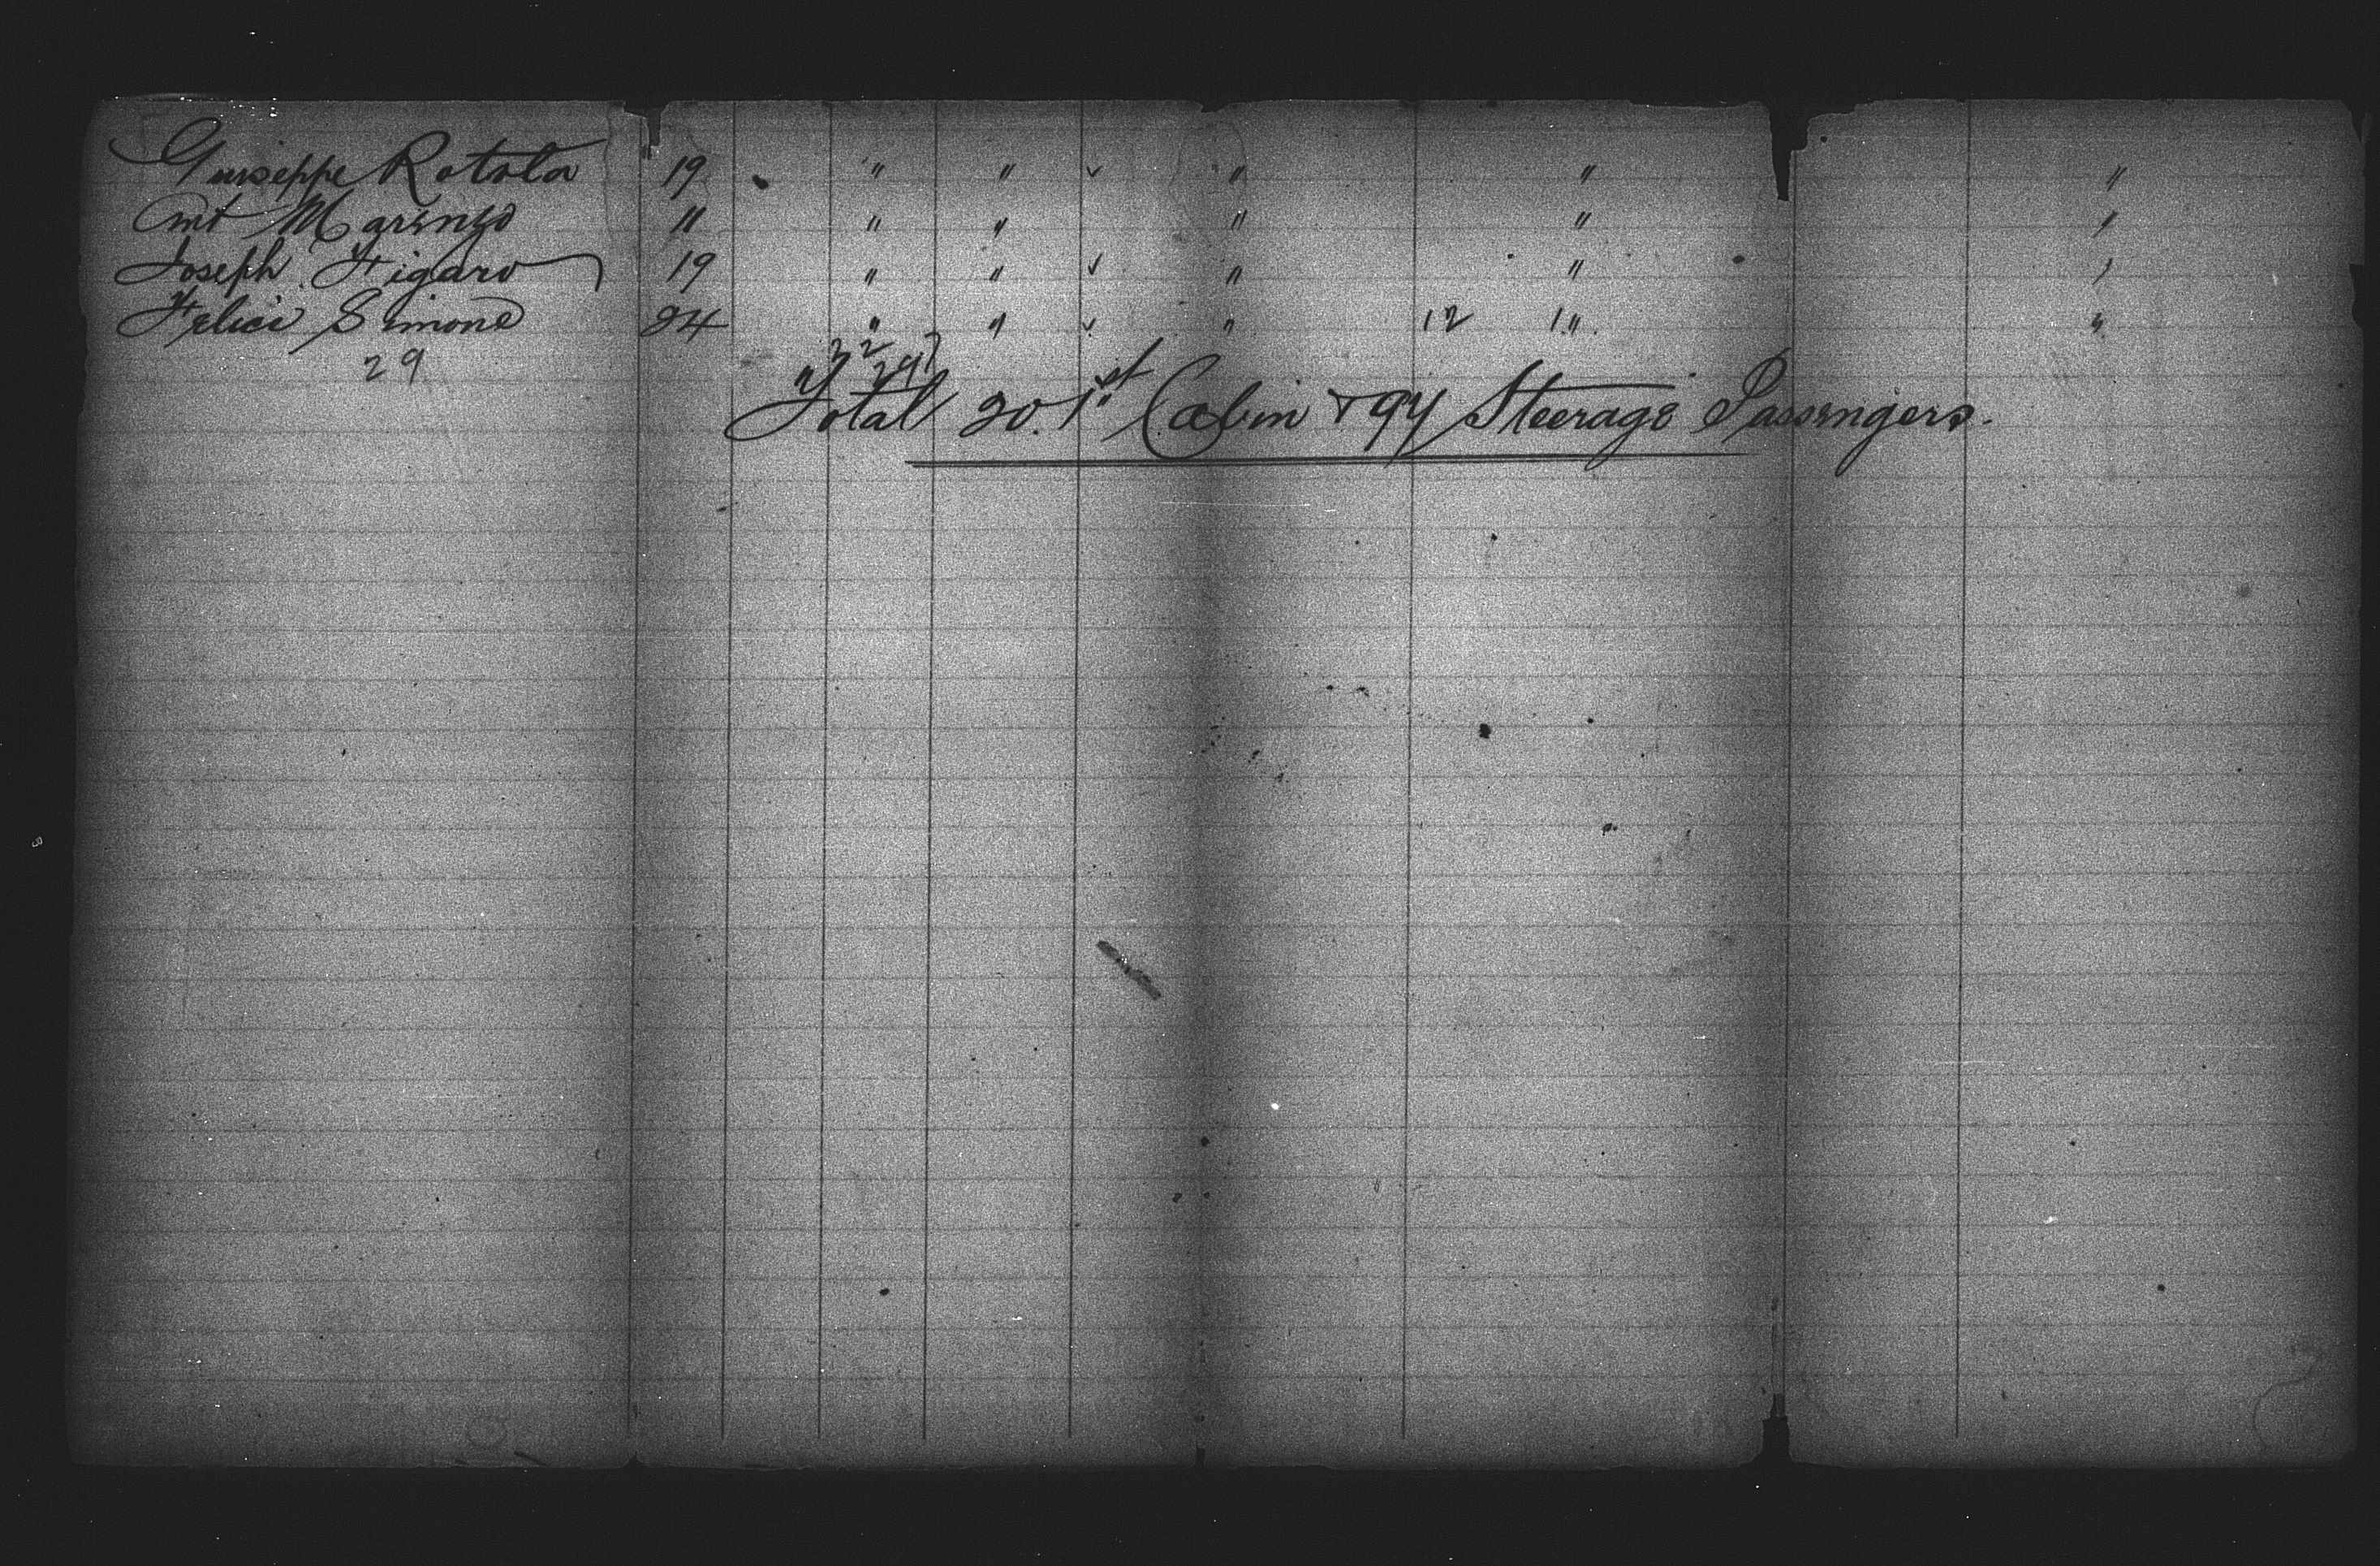 Guiseppe Rotola 19 " " ✓ " " "
Ant Marengo 11 " " " " "
Joseph Figaro 19 " " ✓ " " "
Felici Simone 24 " " ✓ " 12 1 " "
29
Total 20. 1st Cabin & 94 Steerage Passengers.